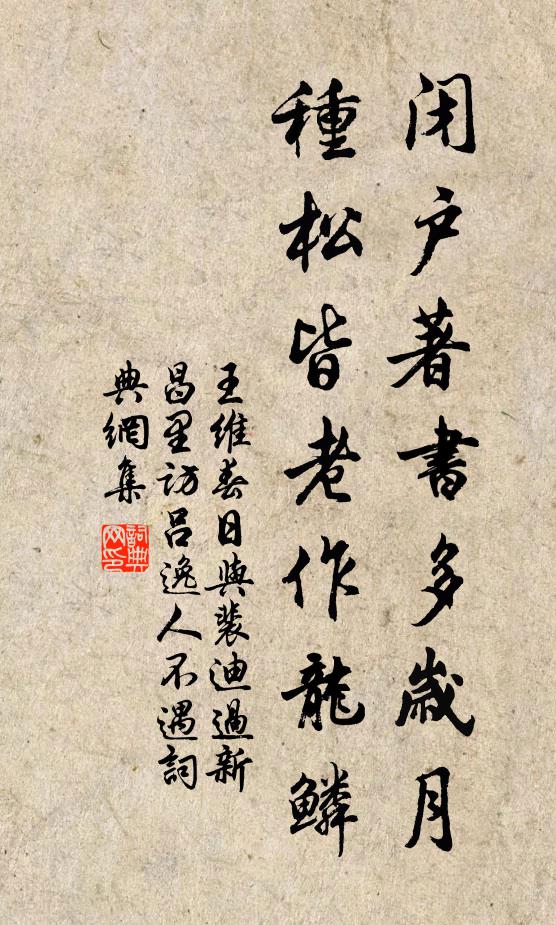 闭户著書多歲月
種松皆老作龍鱗
王維春日與裴迪過新
昌里訪吕逸人不遇詞
典網集
詞典网印